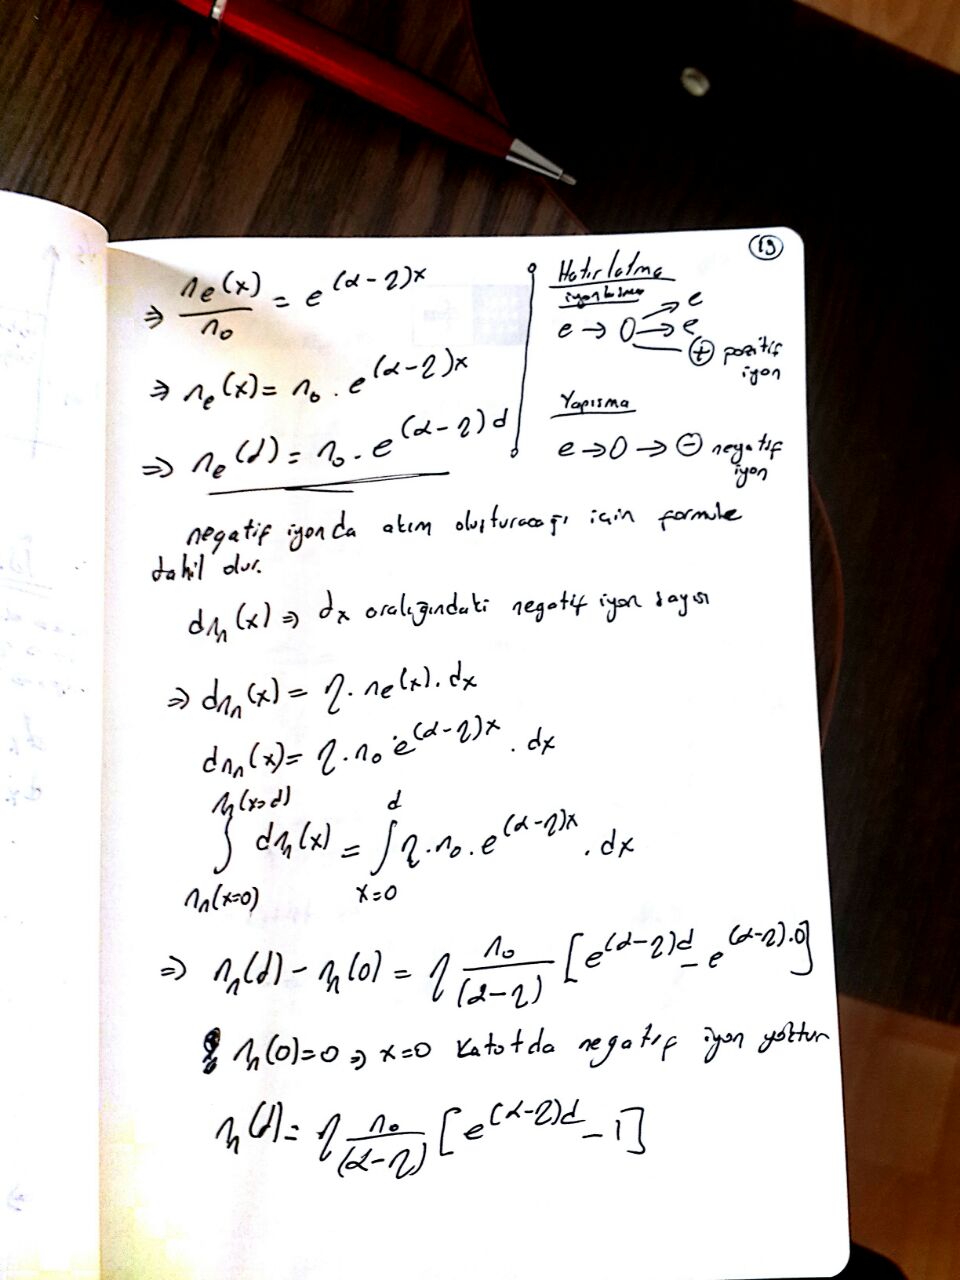 19
⇒ ne(x)/n0 = e^(α-η)x
⇒ ne(x) = n0 . e^(α-η)x
⇒ ne(d) = n0 . e^(α-η)d
Hatırlatma
iyonlaşma
e → O → e
→ e
⊕ pozitif
iyon
Yapışma
e → O → ⊖ negatif
iyon
negatif iyonda akım oluşturacağı için formüle
dahil olur.
dnn(x) ⇒ dx aralığındaki negatif iyon sayısı
⇒ dnn(x) = η . ne(x) . dx
dnn(x) = η . n0 . e^(α-η)x . dx
nn(x=d) d
∫ dnn(x) = ∫ η . n0 . e^(α-η)x . dx
nn(x=0) x=0
⇒ nn(d) - nn(0) = η n0/(α-η) [e^(α-η)d - e^(α-η).0]
nn(0)=0 ⇒ x=0 Katotda negatif iyon yoktur
nn(d) = η n0/(α-η) [e^(α-η)d - 1]